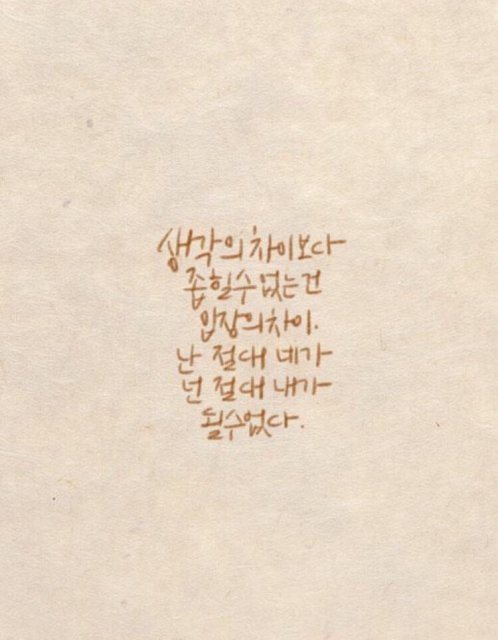 생각의 차이보다
좁힐수 없는건
입장의 차이.
난 절대 네가
넌 절대 내가
될수없다.